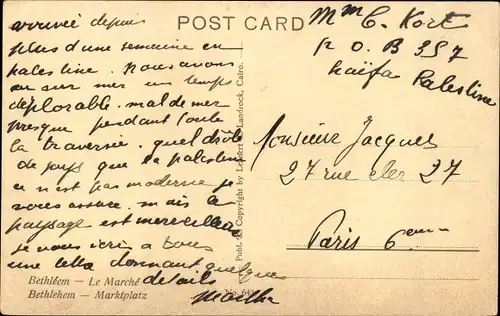 POST CARD
arrivée depuis
plus d'une semaine en
palestine. Nous avons
eu sur mer un temps
déplorable. mal de mer
presque pendant toute
la traversée. quel drôle
de pays que la palestine
ce n'est pas moderne je
vous assure. mais le
paysage est merveilleux
je vous écris à tous
une donnant quelques
details
Mme C. Kort
P.O.B 357
Haïfa Palestine
Monsieur Jacques
27 rue 27
Paris 6eme
Publ. & Copyright by Lehnert & Landrock, Cairo.
Bethléem — Le Marché
Bethlehem — Marktplatz